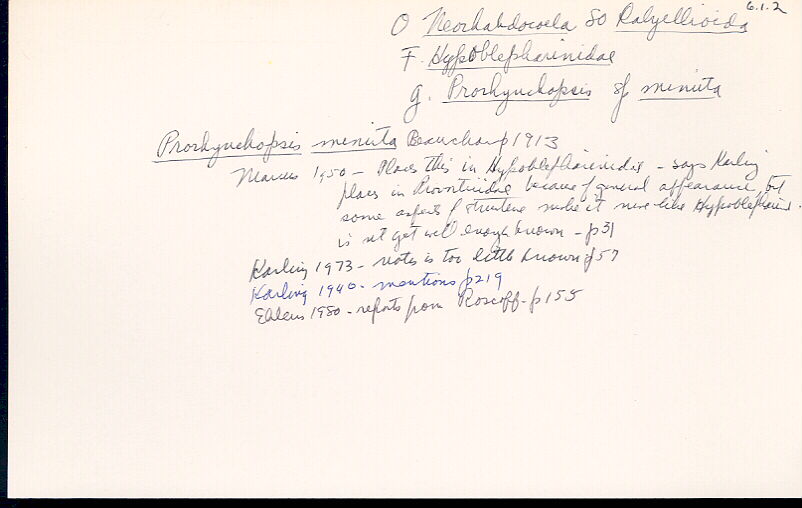 6.1.2
O Neorhabdocoela SO Dalyellioida
F. Hypoblepharinidae
g. Prorhynchopsis sp minuta
Prorhynchopsis minuta Beauchamp 1913
Marcus 1950 - Places this in Hypoblepharinidae - says Karling
places in Provorticidae because of general appearance, but
some aspects of structure make it more like Hypoblepharid.
is not yet well enough known - p31
Karling 1973 - notes is too little known p57
Karling 1940 - mentions p219
Ehlers 1980 - reports from Roscoff - p155